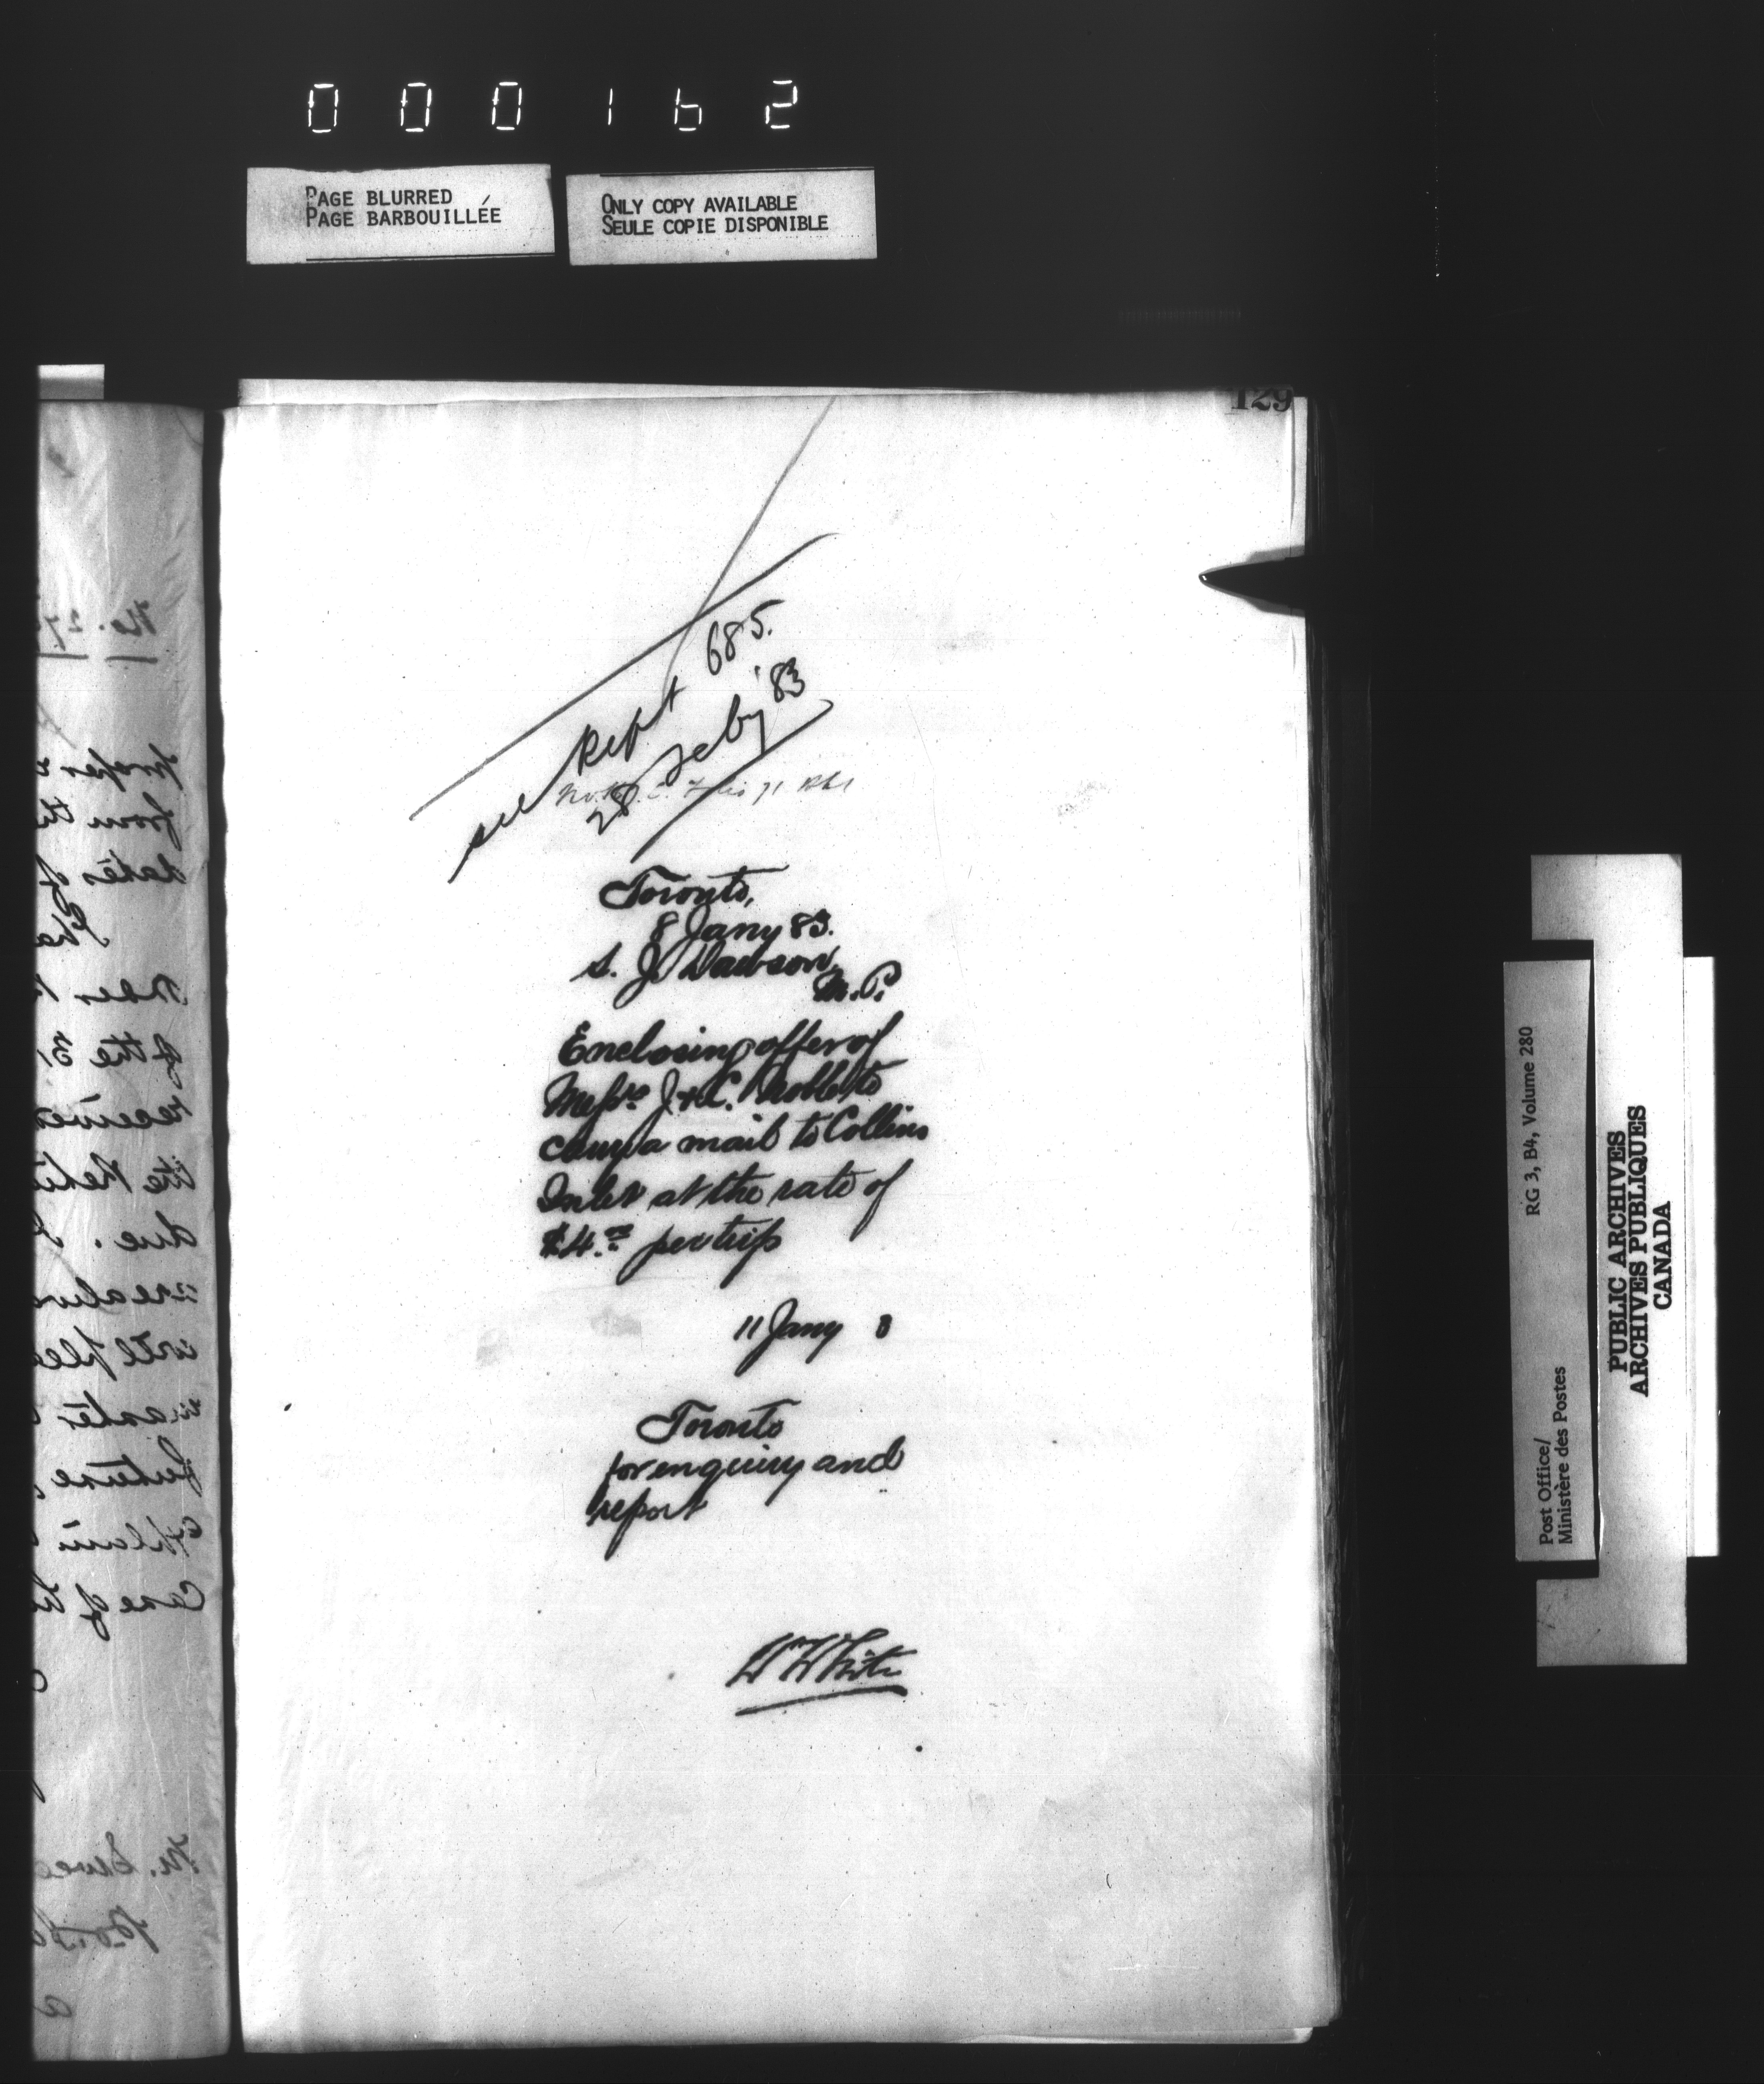 000162
PAGE BLURRED
PAGE BARBOUILLÉE
ONLY COPY AVAILABLE
SEULE COPIE DISPONIBLE
129
see Rept 685.
28 Feby '83
Toronto,
8 Jany 83.
S. J. Dawson,
M.P.
Enclosing offer of
Messrs J. & C. Noble to
carry a mail to Collins
Inlet at the rate of
$4.00 per trip
11 Jany 8
Toronto
for enquiry and
report
W White
No. 27
from th
dates of
of the
receive
due.
future,
Case of
RG 3, B4, Volume 280
Post Office/
Ministère des Postes
PUBLIC ARCHIVES
ARCHIVES PUBLIQUES
CANADA